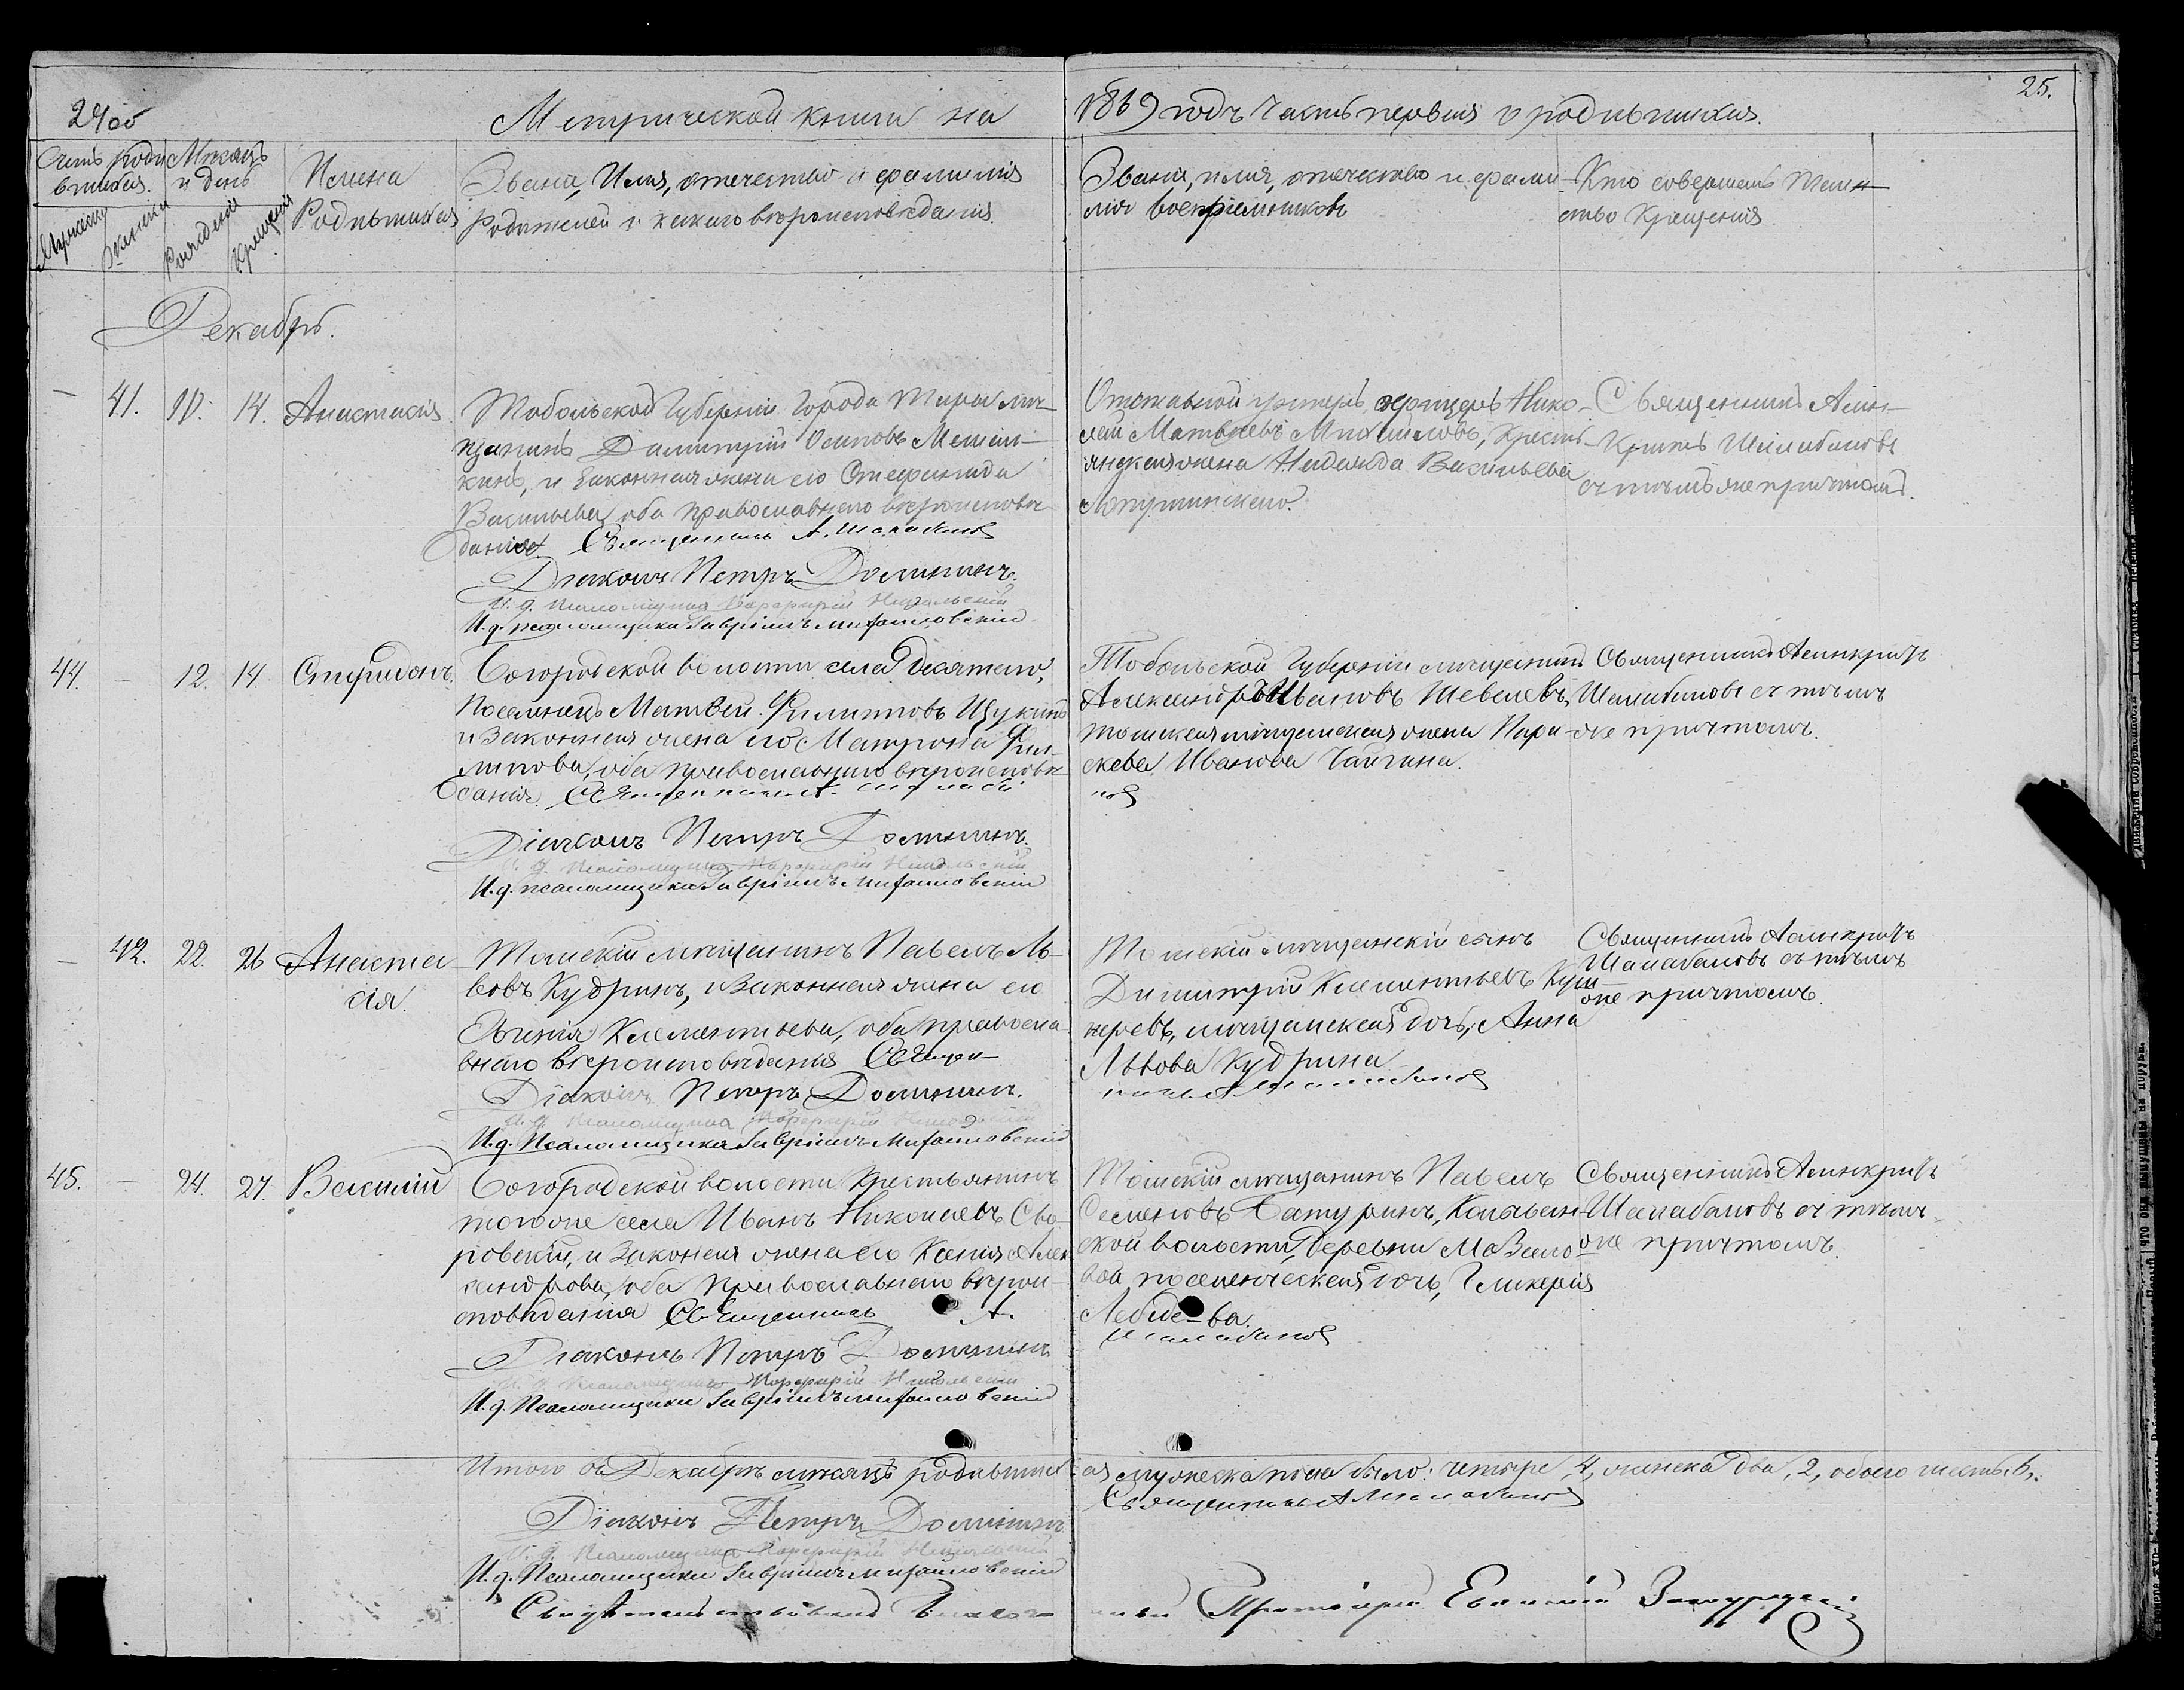 24об
25.
Метрической книги на 1869 годъ Часть первая о родившихся.
Счетъ роди
вшихся.
Мужеска
Женска
Мѣсяцъ
и день
Рожденія
Крещенія
Имена
Родившихся
Званіе, Имя, отечество и фамилія
Родителей и какого вѣроисповѣданія
Званіе, имя, отечество и фами-
лія воспріемниковъ
Кто совершалъ таин-
ство Крещенія
Декабрь.
— 41. 14. Анастасія
Тобольской Губерніи Города Тары мѣ-
щанинъ Димитрій Осиповъ
и законная жена его Стефанида
Васильева, оба православнаго вѣроисповѣ-
данія Священникъ А. Шалабановъ
Діаконъ Петръ Доминъ.
И. д. Псаломщика Порфирій Никольскій
И. д. псаломщика Гавріилъ Михайловскій
Отставной офицеръ Нико-
лай Матвѣевъ Михайловъ, Кресть-
янская жена Надежда Васильева
Священникъ Асин-
критъ Шалабановъ
съ тѣмъ же причтомъ.
44. — 12. 14. Спиридонъ.
Богородской волости села Десятого,
Поселенецъ Матвей Филиповъ Щукинъ
и Законная жена его Матрона Фи-
липова, оба православнаго вѣроисповѣ-
данія. Священникъ А. Шалаба
новъ
Діаконъ Петръ Доминъ.
И. д. Псаломщика Порфирій Никольскій
И. д. псаломщика Гавріилъ Михайловскій
Тобольской Губерніи мѣщанинъ
Александръ Ивановъ Шевелевъ,
томская мѣщанская жена Пара-
скева Иванова Чайгина.
Священникъ Асинкритъ
Шалабановъ съ тѣмъ
же причтомъ.
— 42. 22. 26 Анаста-
сія.
Томскій мѣщанинъ Павелъ Ль-
вовъ Кудринъ, и Законная жена его
Евгенія Клементьева, оба правосла-
внаго вѣроисповѣданія Священ-
никъ А Шалабановъ
Діаконъ Петръ Доминъ.
И. д. Псаломщика Порфирій Никольскій
И. д. Псаломщика Гавріилъ Михайловскій
Томскій мѣщанскій сынъ
Димитрій Клементьевъ Куш-
неревъ, мѣщанская дочь, Анна
Львова Кудрина
Священникъ Асинкритъ
Шалабановъ съ тѣмъ
же причтомъ.
45. — 24. 27. Василій
Богородской волости Крестьянинъ
того же села Иванъ Николаевъ Сво-
ровскій, и Законная жена его Ксенія Алек
сандрова, оба Православнаго вѣрои-
сповѣданія Священникъ А.
Шалабановъ
Діаконъ Петръ Доминъ
И. д. Псаломщика Порфирій Никольскій
И. д. Псаломщика Гавріилъ Михайловскій
Томскій мѣщанинъ Павелъ
Семеновъ Батуринъ,
ской волости, деревни
вой поселенческая дочь, Гликерія
Лебиде-ва.
Священникъ Асинкритъ
Шалабановъ съ тѣмъ
же причтомъ.
Итого въ Декабрѣ мѣсяцѣ родившихся мужеска пола было: четыре, 4, женска два, 2, обоего шесть, 6.
Священникъ А Шалабановъ
Діаконъ Петръ Доминъ
И. д. Псаломщика Порфирій Никольскій
И. д. Псаломщика Гавріилъ Михайловскій
Свидѣтельствовалъ Благочинный Протоіерей Евѳимій